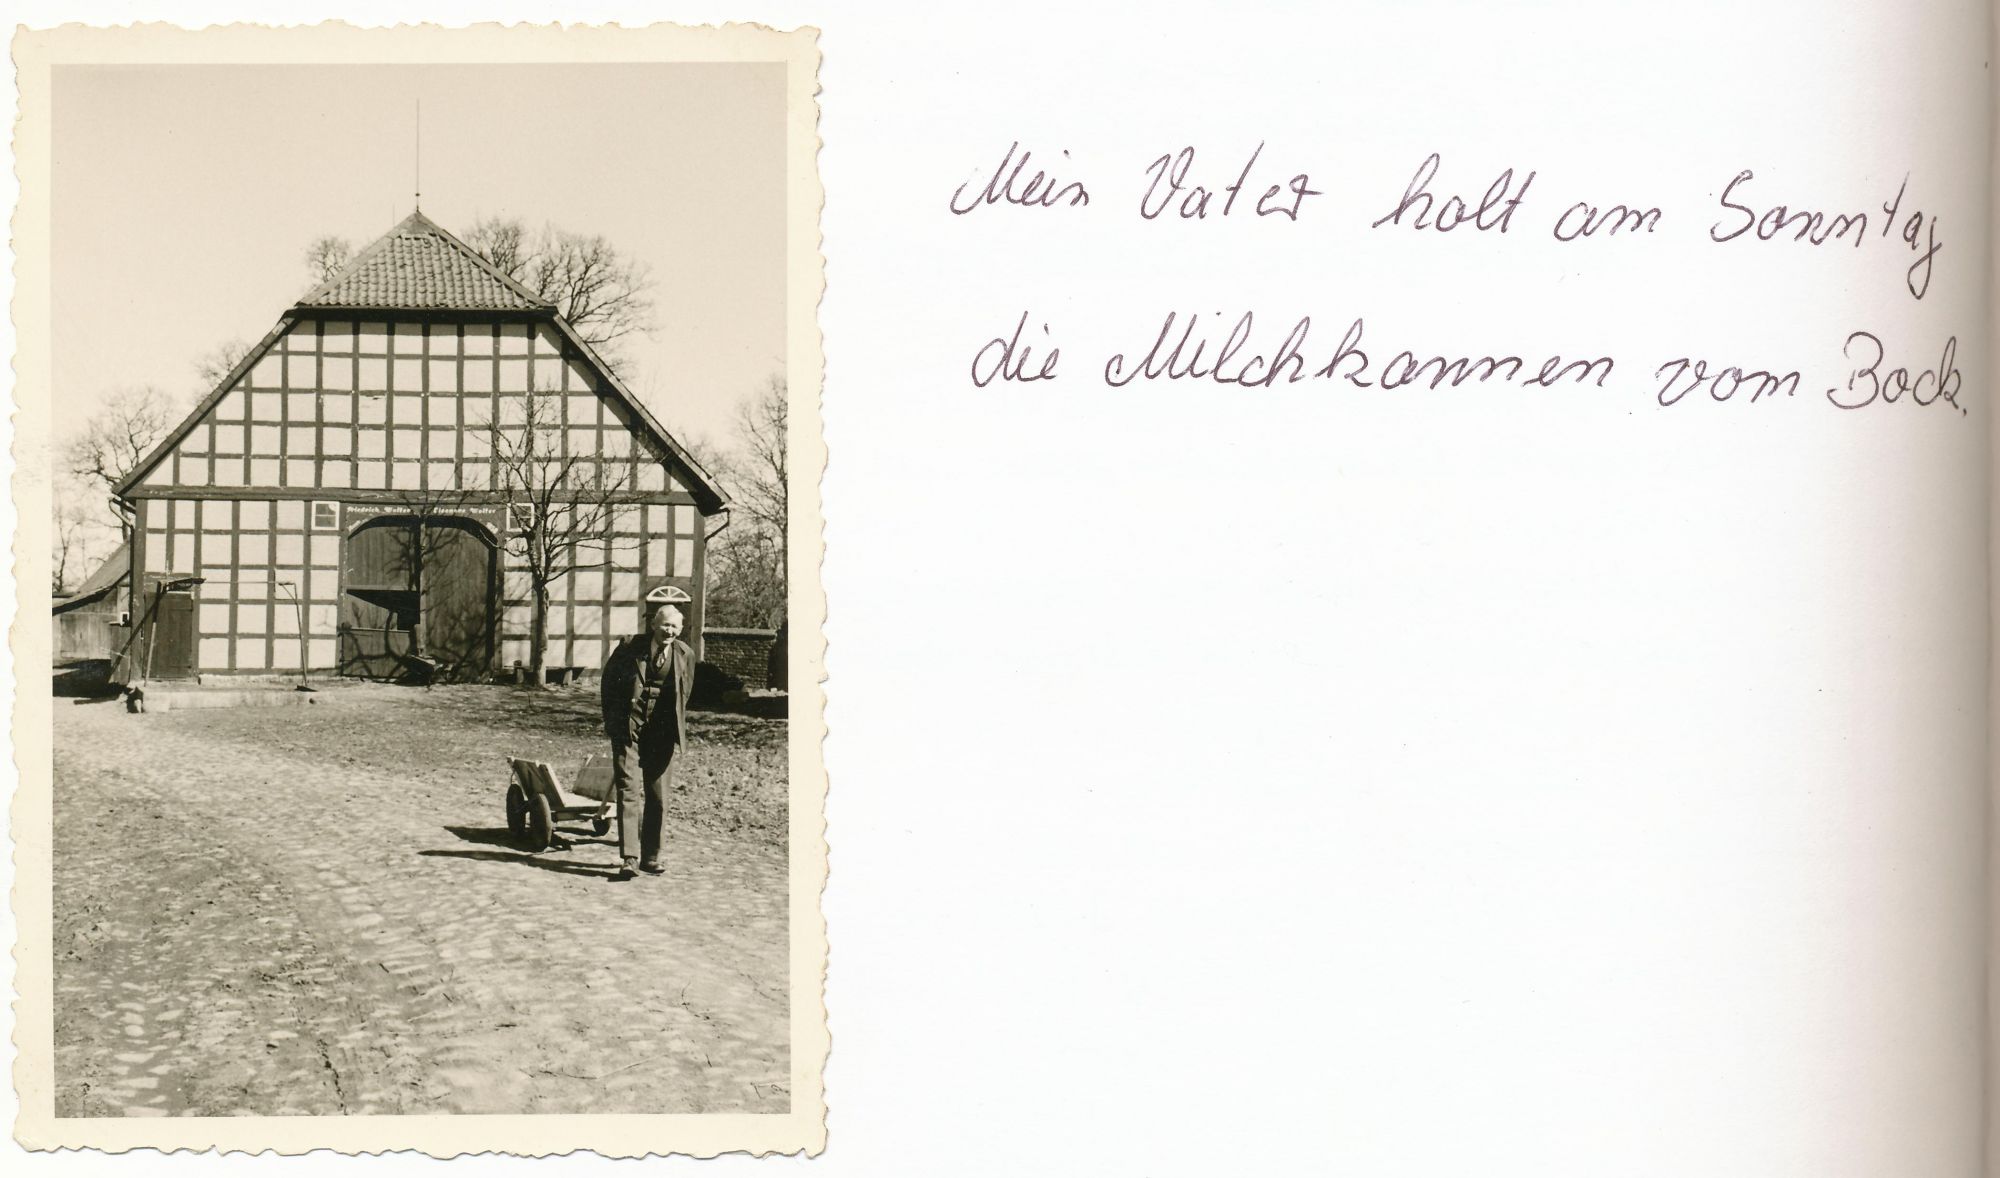 Mein Vater holt am Sonntag
die Milchkannen vom Bock.
Friedrich Wolter Wolter